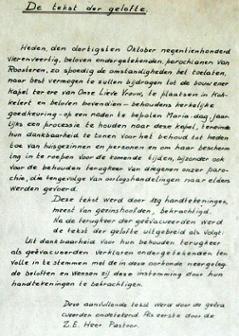 De tekst der gelofte.
Heden, den dertigsten Oktober negentienhonderd
vierenveertig, beloven ondergetekenden, parochianen van
Roosteren, zo spoedig de omstandigheden het toelaten,
naar best vermogen te zullen bijdragen tot de bouw ener
kapel ter ere van Onze Lieve Vrouw, te plaatsen in Kok-
kelert en beloven bovendien - behoudens kerkelijke
goedkeuring - op een nader te bepalen Maria-dag, jaar-
lijks een processie te houden naar deze kapel, teneinde
hun dankbaarheid te tonen voor het behoud tot heden
toe van huisgezinnen en personen en om haar bescherm-
ing in te roepen voor de komende tijden, bijzonder ook
voor de behouden terugkeer van diegenen onzer paro-
chie, die tengevolge van oorlogshandelingen naar elders
werden gevoerd.
Deze tekst werd door handtekeningen,
meest van gezinshoofden, bekrachtigd.
Na de terugkeer der geëvacueerden werd
de tekst der gelofte uitgebreid als volgt:
Uit dankbaarheid voor hun behouden terugkeer
als geëvacueerden verklaren ondergetekenden ten
volle in te stemmen met de in deze oorkonde neergeleg-
de beloften en wensen zij deze instemming door hun
handtekeningen te bekrachtigen.
Deze aanvullende tekst werd door de geëva-
cueerden ondertekend. Als eerste door de
Z.E. Heer Pastoor.